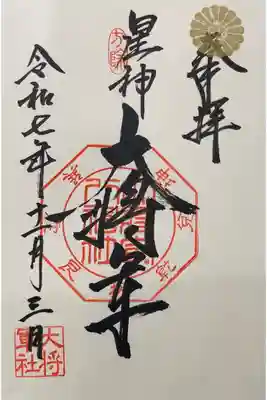 奉拝
星神
大将軍
方除
令和七年十一月三日
大将
軍社